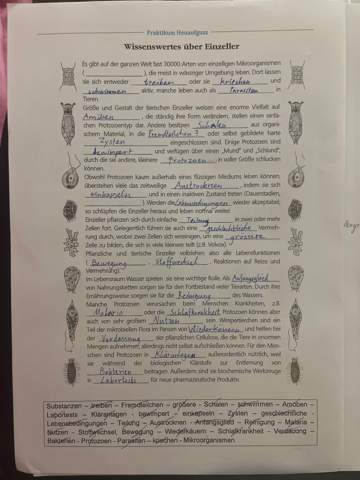 Praktikum Heuaufguss
Wissenswertes über Einzeller
Es gibt auf der ganzen Welt fast 30000 Arten von einzelligen Mikroorganismen
( ), die meist in wässriger Umgebung leben. Dort lassen
sie sich entweder treiben oder sie kriechen und
schwimmen aktiv, manche leben auch als Parasiten in
Tieren.
Größe und Gestalt der tierischen Einzeller weisen eine enorme Vielfalt auf
Amöben, die ständig ihre Form verändern, stellen einen einfa-
chen Protozoentyp dar. Andere besitzen Schalen aus organi-
schem Material, in die Fremdteilchen? oder selbst gebildete harte
Zysten eingeschlossen sind. Einige Protozoen sind
bewimpert und verfügen über einen „Mund" und „Schlund",
durch die sie andere, kleinere Protozoen in voller Größe schlucken
können.
Obwohl Protozoen kaum außerhalb eines flüssigen Mediums leben können,
überstehen viele das zeitweilige Austrocknen, indem sie sich
einkapseln und in einen inaktiven Zustand treten (Dauerstadien,
). Werden die Lebensbedingungen wieder akzeptabel,
so schlüpfen die Einzeller heraus und leben normal weiter.
Einzeller pflanzen sich durch einfache Teilung in zwei oder mehr
Zellen fort. Gelegentlich führen sie auch eine geschlechtliche Vermeh-
rung durch, wobei zwei Zellen sich vereinigen, um eine grössere
Zelle zu bilden, die sich in viele kleinere teilt (z.B. Volvox).
Pflanzliche und tierische Einzeller vollziehen also alle Lebensfunktionen
(Bewegung, Stoffwechsel, Reaktionen auf Reize und
Vermehrung).
Im Lebensraum Wasser spielen sie eine wichtige Rolle. Als Anfangsglied
von Nahrungsketten sorgen sie für den Fortbestand vieler Tierarten. Durch ihre
Ernährungsweise sorgen sie für die Reinigung des Wassers.
Manche Protozoen verursachen beim Menschen Krankheiten, z.B.
Malaria oder die Schlafkrankheit. Protozoen können aber
auch von sehr großem Nutzen sein. Wimpertierchen sind ein
Teil der mikrobiellen Flora im Pansen von Wiederkäuern und helfen bei
der Verdauung der pflanzlichen Cellulose, die die Tiere in enormen
Mengen aufnehmen, allerdings nicht selbst aufschließen können. Für den Men-
schen sind Protozoen in Kläranlagen außerordentlich nützlich, weil
sie während der biologischen Klärstufe zur Entfernung von
Bakterien beitragen. Außerdem sind sie biochemische Werkzeuge
in Labortests für neue pharmazeutische Produkte.
Substanzen – treiben – Fremdteilchen – größere - Schalen – schwimmen – Amöben -
Labortests – Kläranlagen - bewimpert – einkapseln – Zysten – geschlechtliche -
Lebensbedingungen – Teilung – Austrocknen - Anfangsglied – Reinigung – Malaria –
Nutzen - Stoffwechsel, Bewegung – Wiederkäuern – Schlafkrankheit - Verdauung –
Bakterien - Protozoen - Parasiten – kriechen - Mikroorganismen